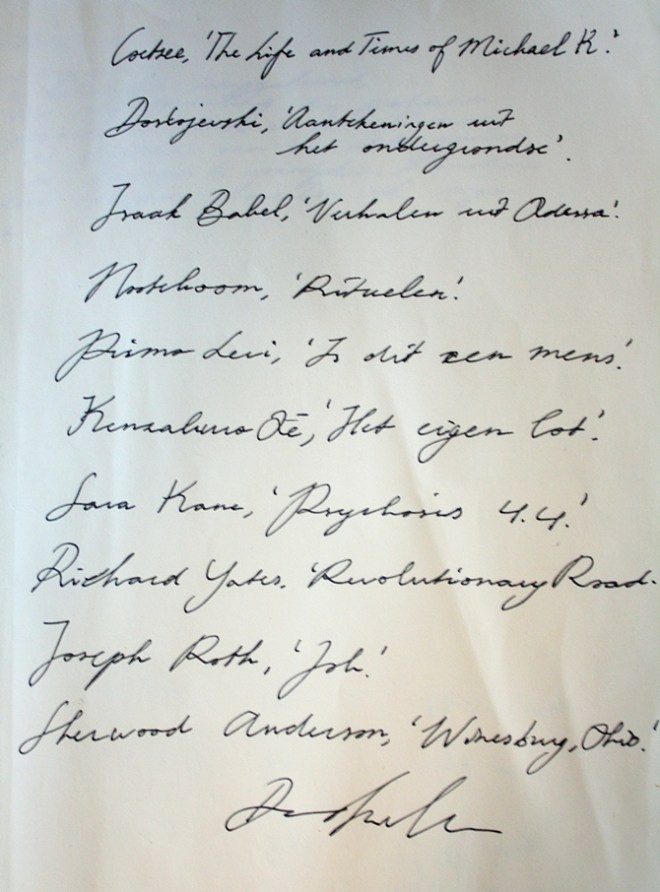 Coetsee, 'The Life and Times of Michael K.'
Dostojevski, 'Aantekeningen uit
het ondergrondse'.
Isaak Babel, 'Verhalen uit Odessa'.
Nooteboom, 'Rituelen'.
Primo Levi, 'Is dit een mens'.
Kenzaburo Ōe, 'Het eigen lot'.
Sara Kane, 'Psychosis 4.4.'
Richard Yates. 'Revolutionary Road.
Joseph Roth, 'Job.'
Sherwood Anderson, 'Winesburg, Ohio.'